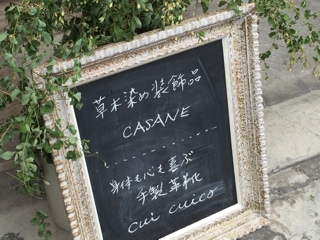 草木染め装飾品
CASANE
身体も心も喜ぶ
手製革靴
cui cuico